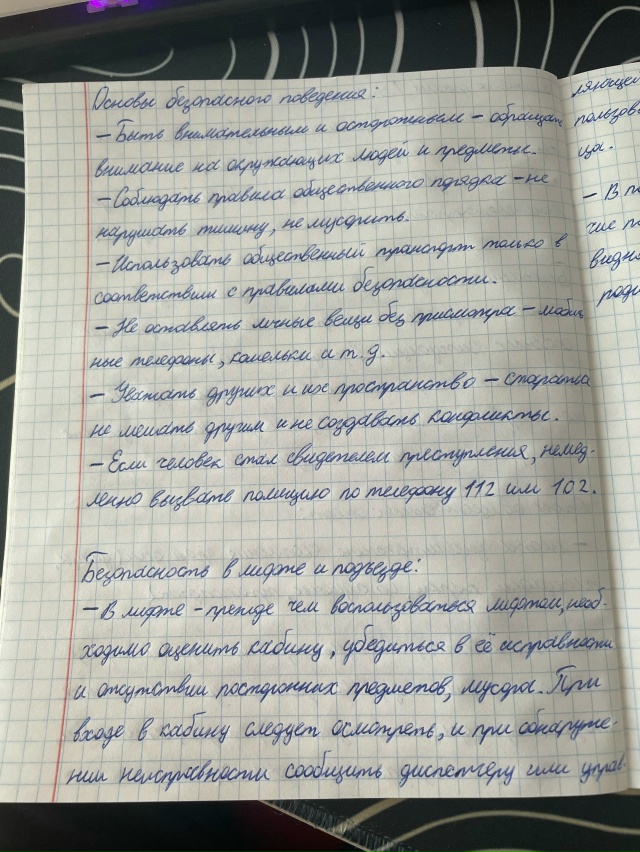 Основы безопасного поведения:
– Быть внимательным и осторожным – обращать
внимание на окружающих людей и предметы.
– Соблюдать правила общественного порядка – не
нарушать тишину, не мусорить.
– Использовать общественный транспорт только в
соответствии с правилами безопасности.
– Не оставлять личные вещи без присмотра – мобиль
ные телефоны, кошельки и т.д.
– Уважать других и их пространство – стараться
не мешать другим и не создавать конфликты.
– Если человек стал свидетелем преступления, немед-
ленно вызвать полицию по телефону 112 или 102.
Безопасность в лифте и подъезде:
– В лифте – прежде чем воспользоваться лифтом, необ-
ходимо оценить кабину, убедиться в её исправности
и отсутствии посторонних предметов, мусора. При
входе в кабину следует осмотреть, и при обнаруже-
нии неисправности сообщить диспетчеру или управ-
ляющей
пользов
ца.
– В по
чие по
видн
роди